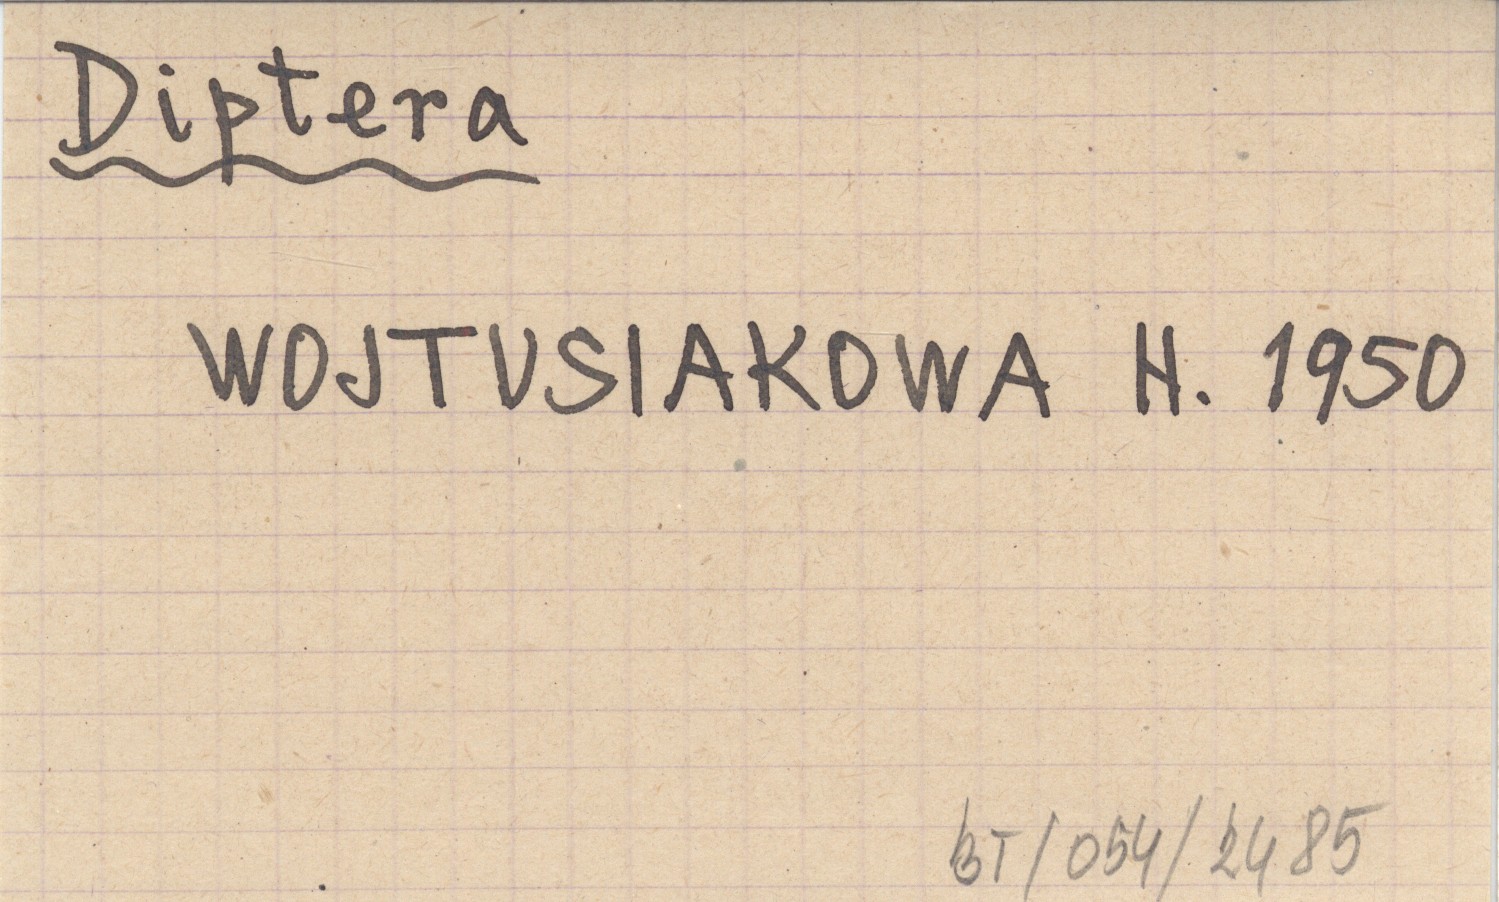 Diptera
WOJTUSIAKOWA H. 1950
BT/054/2485